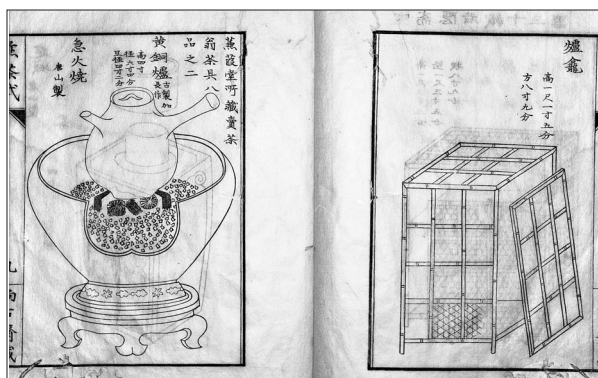 爐龕
高一尺一寸五分
方八寸九分
蒹葭堂所藏賣茶
翁茶具八
品之二
黄銅爐
高四寸
徑六寸四分
急火燒
唐山製